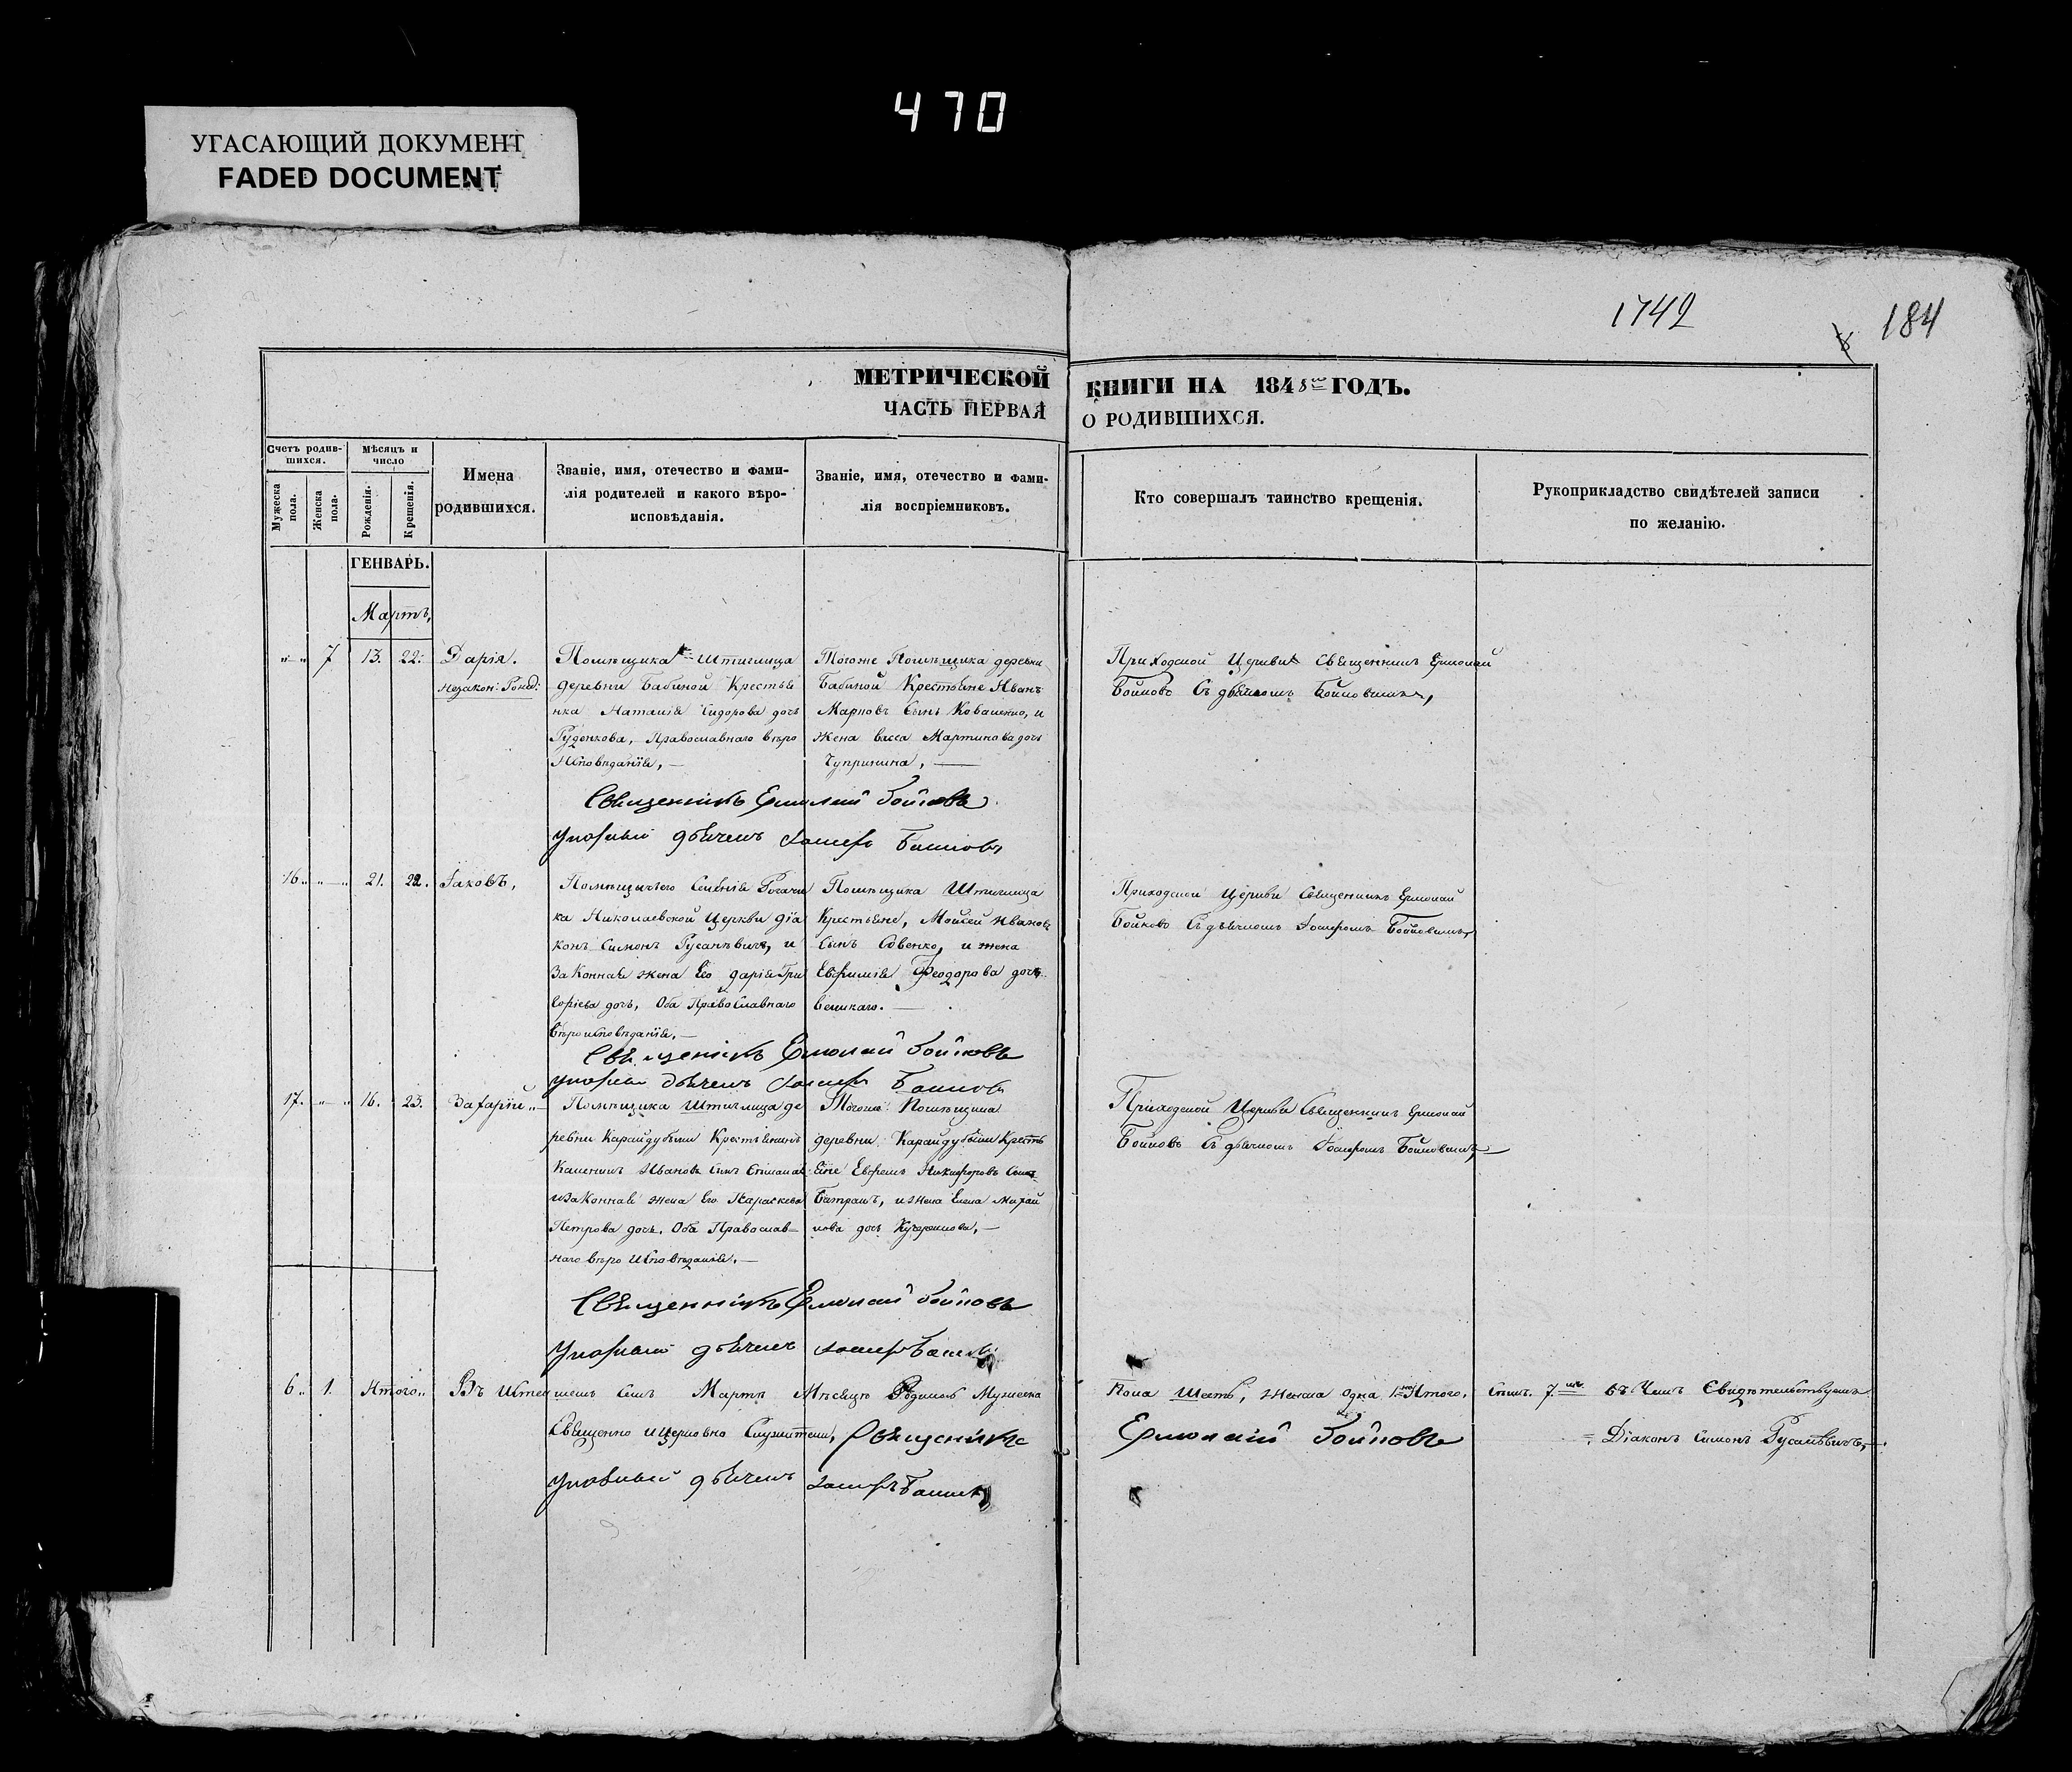 470
УГАСАЮЩИЙ ДОКУМЕНТ
FADED DOCUMENT
1742
184
МЕТРИЧЕСКОЙ КНИГИ НА 1848 ГОДЪ.
ЧАСТЬ ПЕРВАЯ О РОДИВШИХСЯ.
Счетъ родив-
шихся.
Мужеска пола.
Женска пола.
Мѣсяцъ и
число
Рожденія.
Крещенія.
Имена
родившихся.
Званіе, имя, отечество и фами-
лія родителей и какого вѣро-
исповѣданія.
Званіе, имя, отечество и фами-
лія воспріемниковъ.
Кто совершалъ таинство крещенія.
Рукоприкладство свидѣтелей записи
по желанію.
ГЕНВАРЬ.
Мартъ,
7 13. 22. Дарія.
Незакон: Рожд:
Помѣщика Штиглица
деревни Бабиной Крестья
нка Наталія Сидорова дочь
Руденкова, Православнаго вѣро
Исповѣданія,
Тогоже Помѣщика деревни
Бабиной Крестьяне Иванъ
Марковъ Сынъ Коваленко, и
жена Васса Мартинова дочь
Чупринина,
Приходской Церкви Священникъ Ермолай
Бойковъ Съ дьячкомъ Бойковымъ,
Священникъ Ермолай Бойковъ
дьячекъ Бойковъ
16. 21. 22. Іаковъ,
Помѣщичьего Селенія Рогачи
ка Николаевской Церкви діа
конъ Симонъ Русанѣвичъ, и
Законная жена Его Дарія Гри
горіева дочь, Оба Православнаго
вѣроисповѣданія,
Помѣщика Штиглица
Крестьяне, Моисей Ивановъ
Сынъ Совенко, и жена
Евфимія Феодорова дочь
Великаго.
Приходской Церкви Священникъ Ермолай
Бойковъ Съ дьячкомъ Іосифомъ Бойковымъ,
Священникъ Ермолай Бойковъ
дьячекъ Бойковъ
17. 16. 23. Захарій
Помѣщика Штиглица де
ревни Карайдубыни Крестьянинъ
Иванова Сынъ
и Законная жена Его Параскева
Петрова дочь, Оба Православ-
наго вѣро Исповѣданія,
Тогоже Помѣщика
деревни Карайдубыни Кресть
яне Ефремъ Никифоровъ Сынъ
Батракъ, и жена Елена Михай
лова дочь Кучеренкова,
Приходской Церкви Священникъ Ермолай
Бойковъ Съ дьячкомъ Іосифомъ Бойковымъ,
Священникъ Ермолай Бойковъ
дьячекъ
6. 1. Итого. Въ Истекшемъ Семъ Мартѣ Мѣсяцѣ Родилось Мужеска Пола Шесть, Женска одна Итого, 7 въ Чемъ Свидѣтельствуемъ
Священно и Церковно Служители, Священникъ Ермолай Бойковъ
Діаконъ Симонъ Русанѣвичъ,
дьячекъ